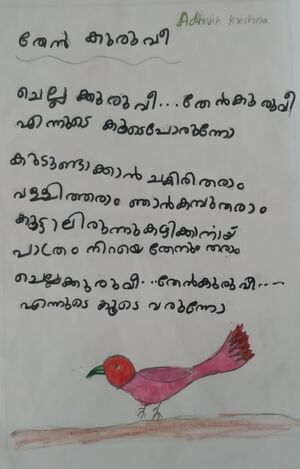 Adhvik Krishna
തേൻ കുരുവീ
ചെല്ല ക്കുരുവീ...തേൻകുരുവീ
എന്നുടെ കൂടെപോരുന്നോ
കൂടുണ്ടാക്കാൻ ചകിരിതരാം
വള്ളിത്തരാം ഞാൻകമ്പുതരാം
കൂട്ടാലിരുന്നുകളിക്കാനായ്
പാത്രം നിറയെ തേനും തരാം
ചെല്ലക്കുരുവീ...തേൻകുരുവീ...
എന്നുടെ കൂടെ വരുന്നോ